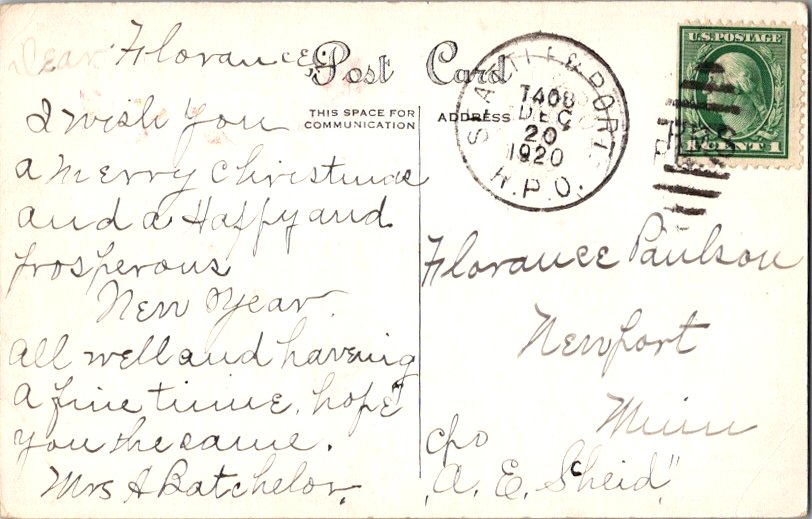 Dear Florance,
Post Card
THIS SPACE FOR
COMMUNICATION
ADDRESS
I wish you
a merry Christmas
and a Happy and
prosperous
New Year.
All well and haveing
a fine time, hope
you the same.
Mrs A Batchelor.
SEATTLE & PORT.
T408
DEC
20
1920
R.P.O.
U.S. POSTAGE
1 CENT 1
RMS
Florance Paulson
Newport
Minn
c/o
"A. E. Scheid"